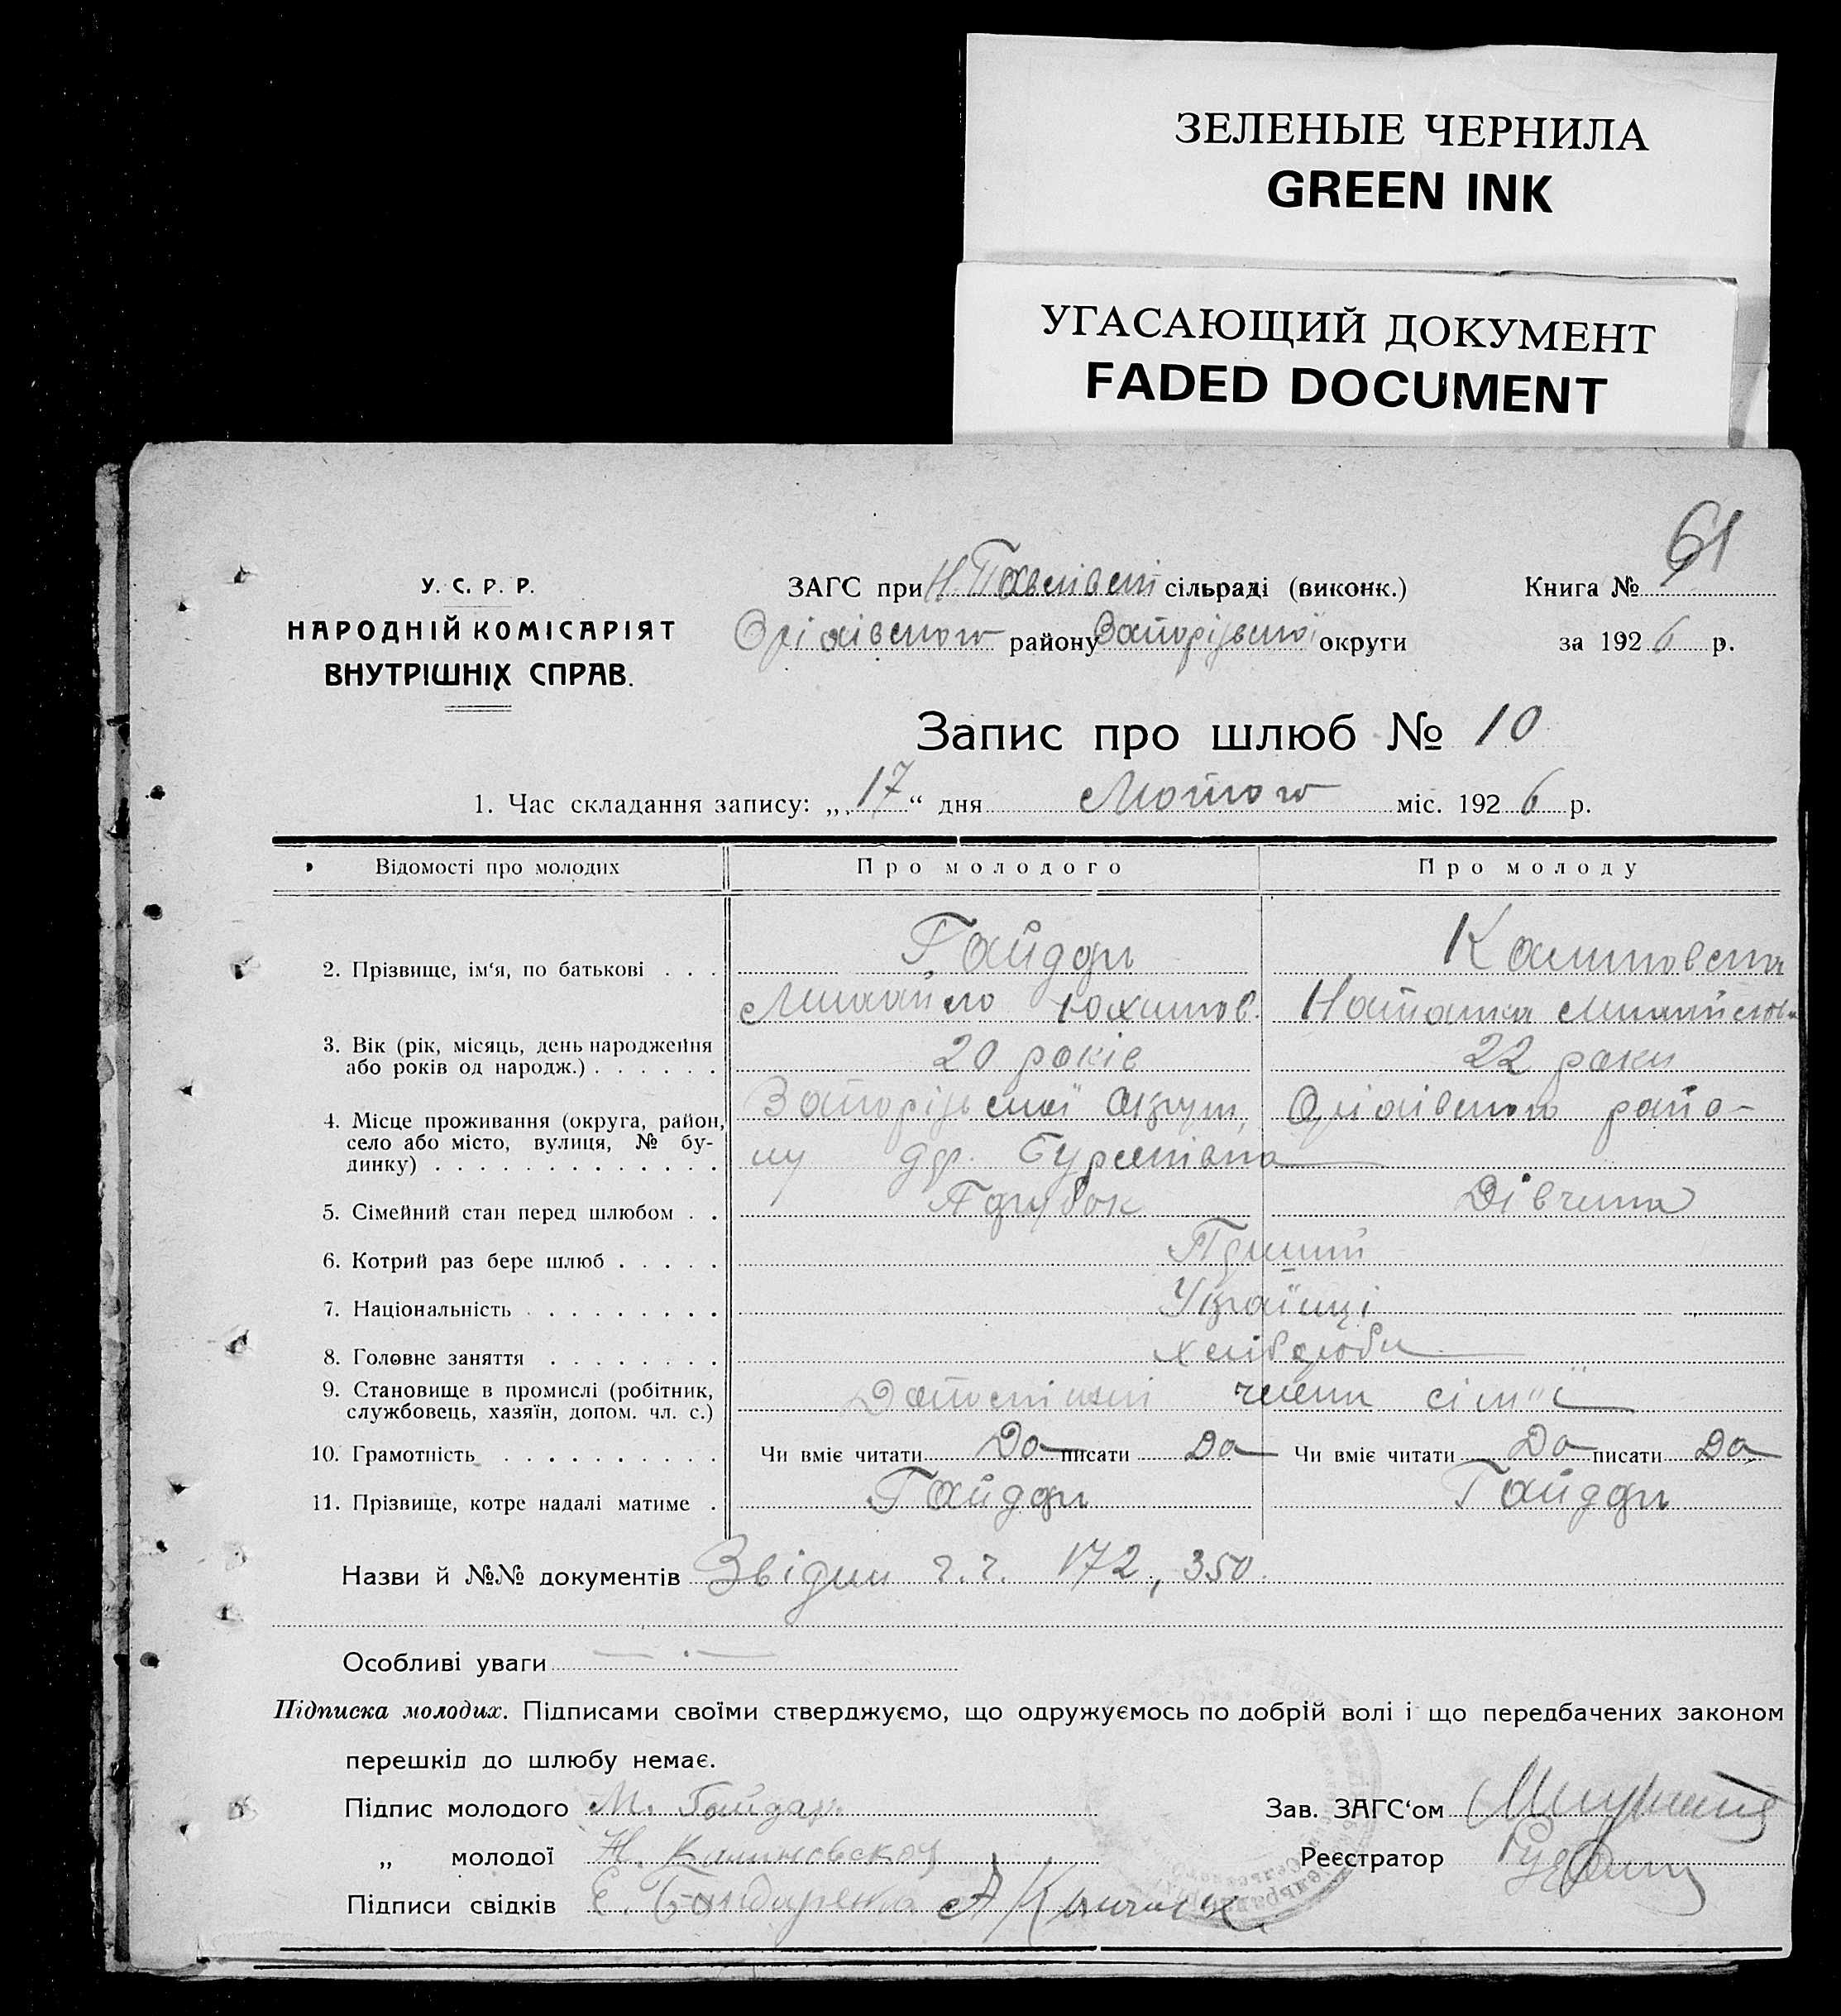 ЗЕЛЕНЫЕ ЧЕРНИЛА
GREEN INK
УГАСАЮЩИЙ ДОКУМЕНТ
FADED DOCUMENT
61
У. С. Р. Р.
НАРОДНІЙ КОМІСАРІЯТ
ВНУТРІШНІХ СПРАВ.
ЗАГС при Н. Павлівські сільраді (виконк.) Книга №
району Запорізької округи за 1926 р.
Запис про шлюб № 10
1. Час складання запису: „17“ дня Лютого міс. 1926 р.
Відомості про молодих Про молодого Про молоду
2. Прізвище, ім‘я, по батькові . . . Гайдар Калиновська
Михайло Юхимов. Наталка Михайлов
3. Вік (рік, місяць, день народження
або років од народж.) . . . . . . 20 років 22 роки
4. Місце проживання (округа, район, Запорізької округи,
село або місто, вулиця, № бу-
динку) . . . . . . . . . . . . .
5. Сімейний стан перед шлюбом . . Парубок Дівчина
6. Котрий раз бере шлюб . . . . . Перший
7. Національність . . . . . . . . . Українці
8. Головне заняття . . . . . . . . хлібороби
9. Становище в промислі (робітник,
службовець, хазяїн, допом. чл. с.) члени сім"ї
10. Грамотність . . . . . . . . . . Чи вміє читати Да писати Да Чи вміє читати Да писати Да
11. Прізвище, котре надалі матиме . Гайдар Гайдар
Назви й №№ документів 172, 350.
Особливі уваги
Підписка молодих. Підписами своїми стверджуємо, що одружуємось по добрій волі і що передбачених законом
перешкід до шлюбу немає.
Підпис молодого М. Гайдар. Зав. ЗАГС‘ом
„ молодої Н. Калиновская Реєстратор
Підписи свідків Е. Бондаренко